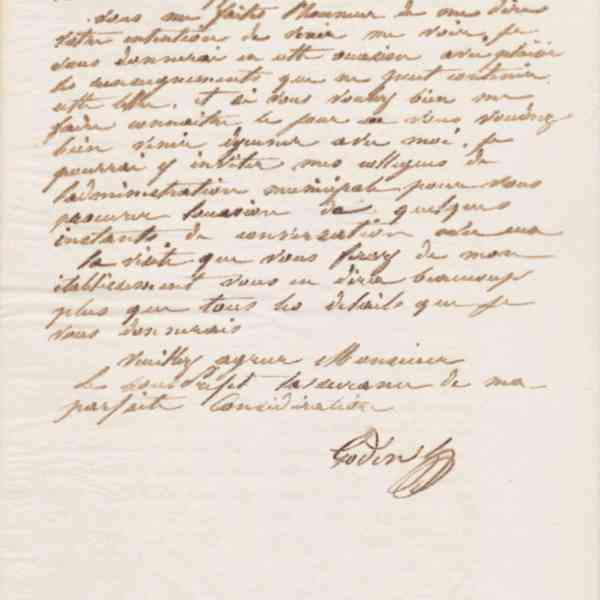 vous me faites l'honneur de me dire
votre intention de venir me voir, je
vous donnerai en cette occasion avec plaisir
les renseignements que ne peut contenir
cette lettre. et si vous voulez bien me
faire connaitre le jour où vous voudrez
bien venir déjeuner avec moi, je
pourrai y inviter mes collègues de
l'administration municipale pour vous
procurer l'occasion de quelques
instants de conversation
la visite que vous ferez de mon
établissement vous en dira beaucoup
plus que tous les détails que je
vous donnerais
veuillez agréer Monsieur
le sous Préfet l'assurance de ma
parfaite Considération
Godin